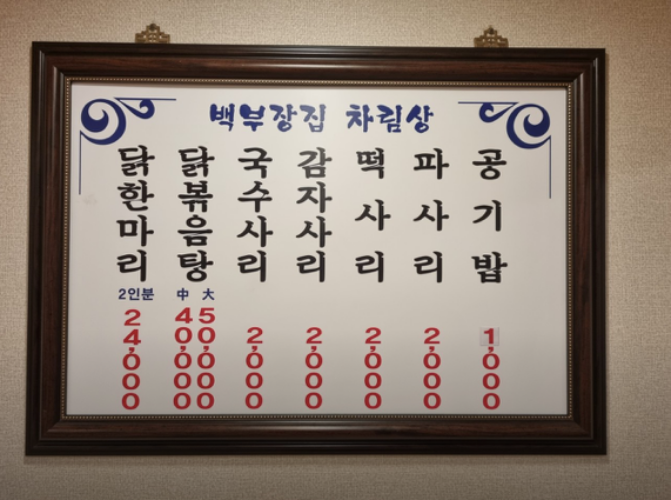 백부장집 차림상
닭한마리
2인분
24,000
닭볶음탕
中 大
40,000 50,000
국수사리
2,000
감자사리
2,000
떡사리
2,000
파사리
2,000
공기밥
1,000